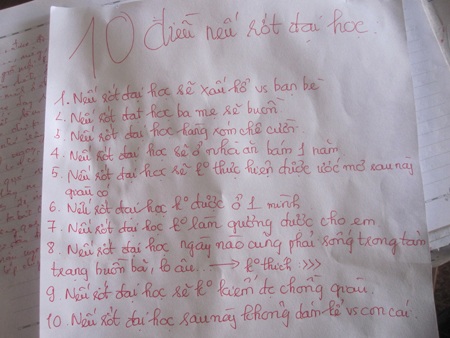 10 điều nếu rớt đại học.
1. Nếu rớt đại học sẽ xấu hổ vs bạn bè
2. Nếu rớt đại học ba mẹ sẽ buồn.
3. Nếu rớt đại học hàng xóm chê cười.
4. Nếu rớt đại học sẽ ở nhà ăn bám 1 năm
5. Nếu rớt đại học sẽ ko thực hiện được ước mơ sau này
giàu có
6. Nếu rớt đại học ko được ở 1 mình
7. Nếu rớt đại học ko làm gương được cho em
8. Nếu rớt đại học ngày nào cũng phải sống trong tâm
trạng buồn bã, lo âu. → ko thích >>>
9. Nếu rớt đại học sẽ ko kiếm đc chồng giàu.
10. Nếu rớt đại học sau này không dám kể vs con cái.